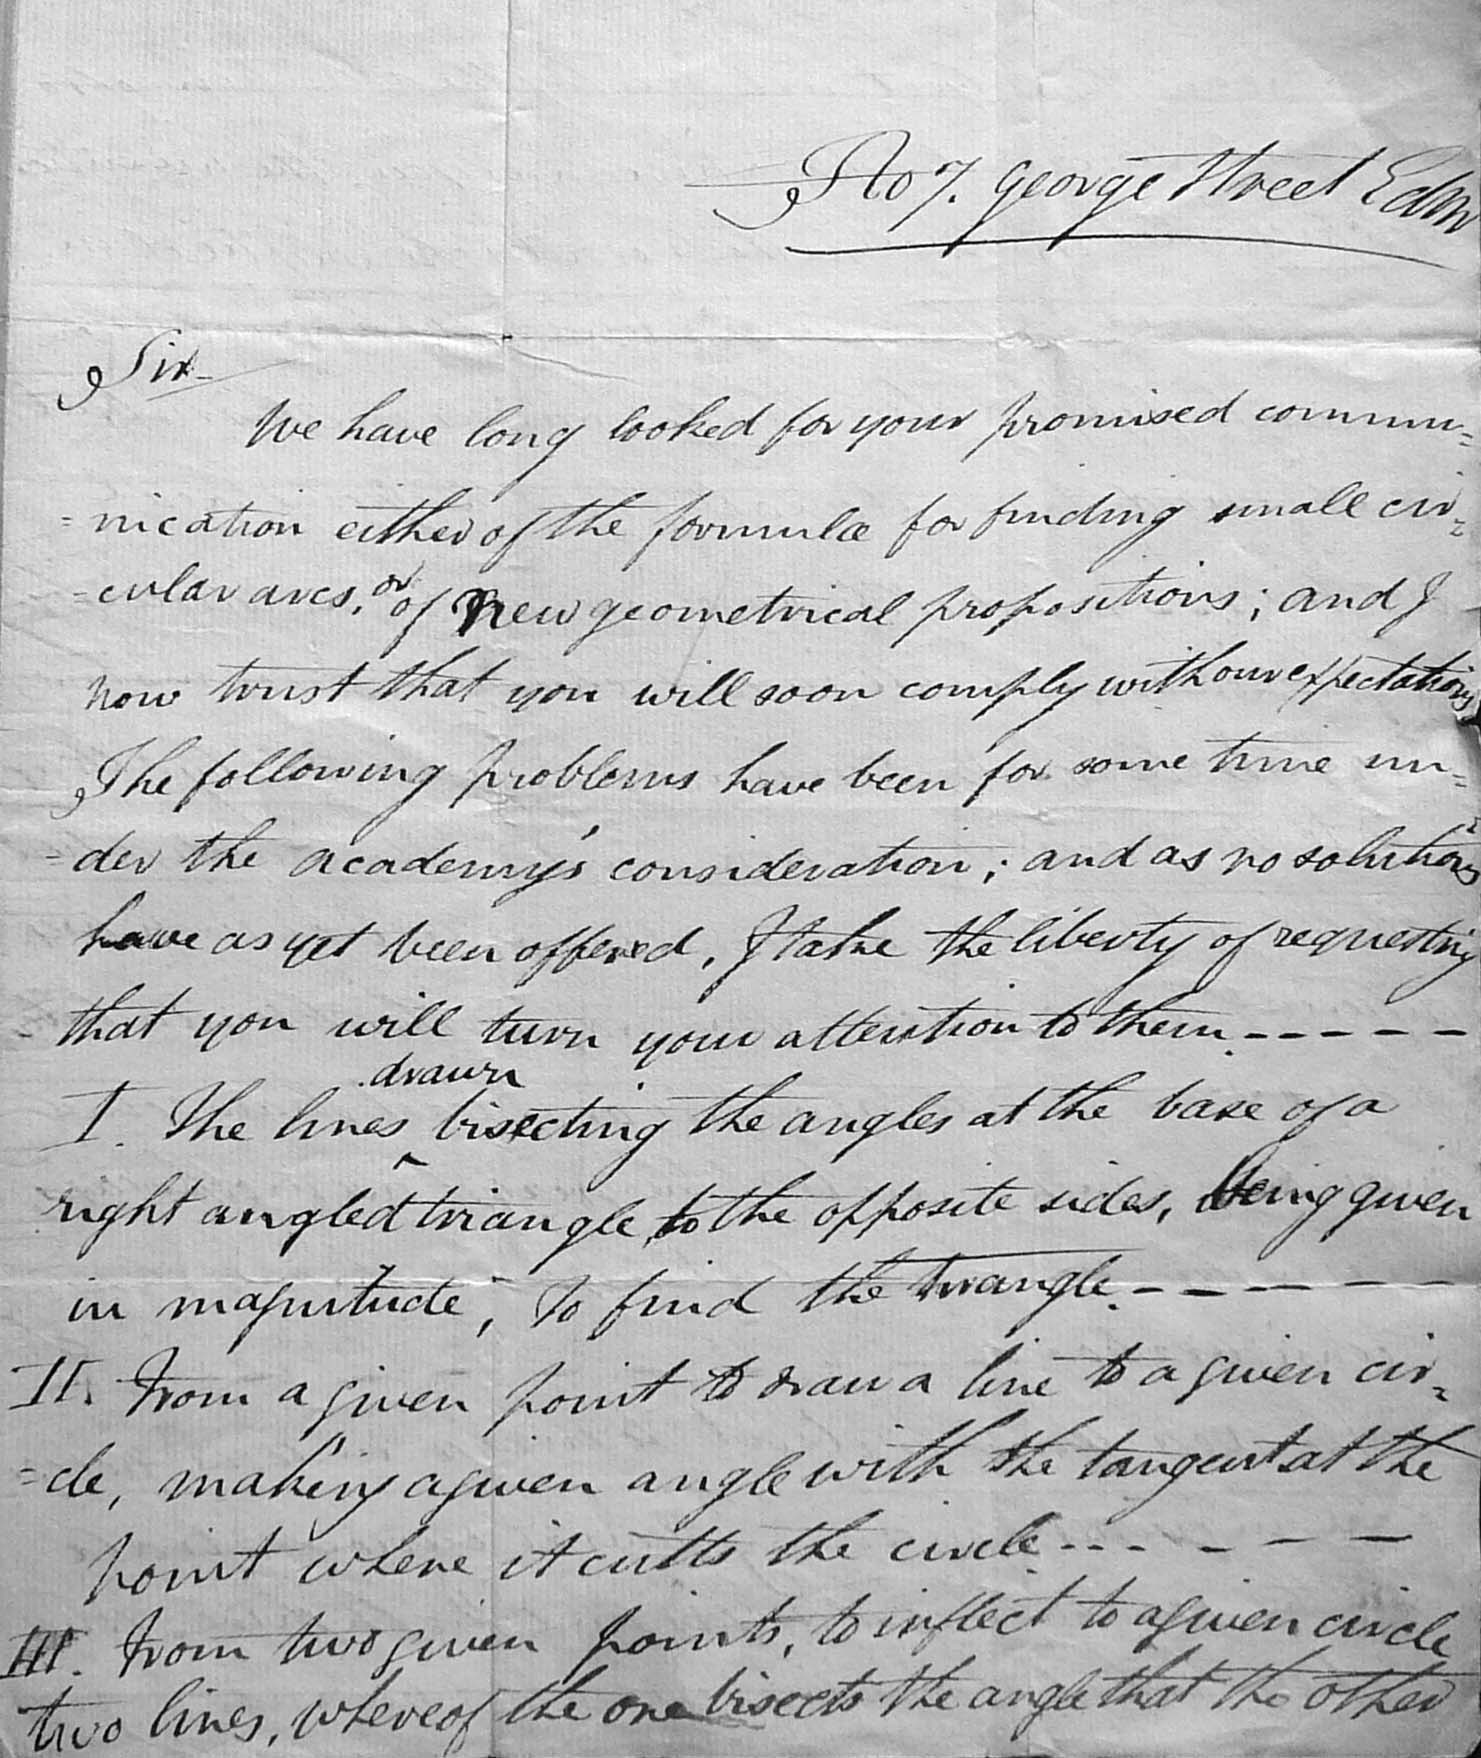 No 7. George Street Edinr
Sir
We have long looked for your promised commu=
=nication either of the formulæ for finding small cir=
=cular arcs, or of new geometrical propositions; and I
now trust that you will soon comply with our expectations
The following problems have been for some time un=
=der the academy's consideration; and as no solutions
have as yet been offered, I take the liberty of requesting
that you will turn your attention to them - - - - -
drawn
I. The lines ‸ bisecting the angles at the base of a
right angled triangle, to the opposite sides, being given
in magnitude, to find the triangle. - - - - - -
II. From a given point to draw a line to a given cir=
=cle, making a given angle with the tangent at the
point where it cutts the circle - - - - - -
III. From two given points, to inflect to a given circle
two lines, whereof the one bisects the angle that the other